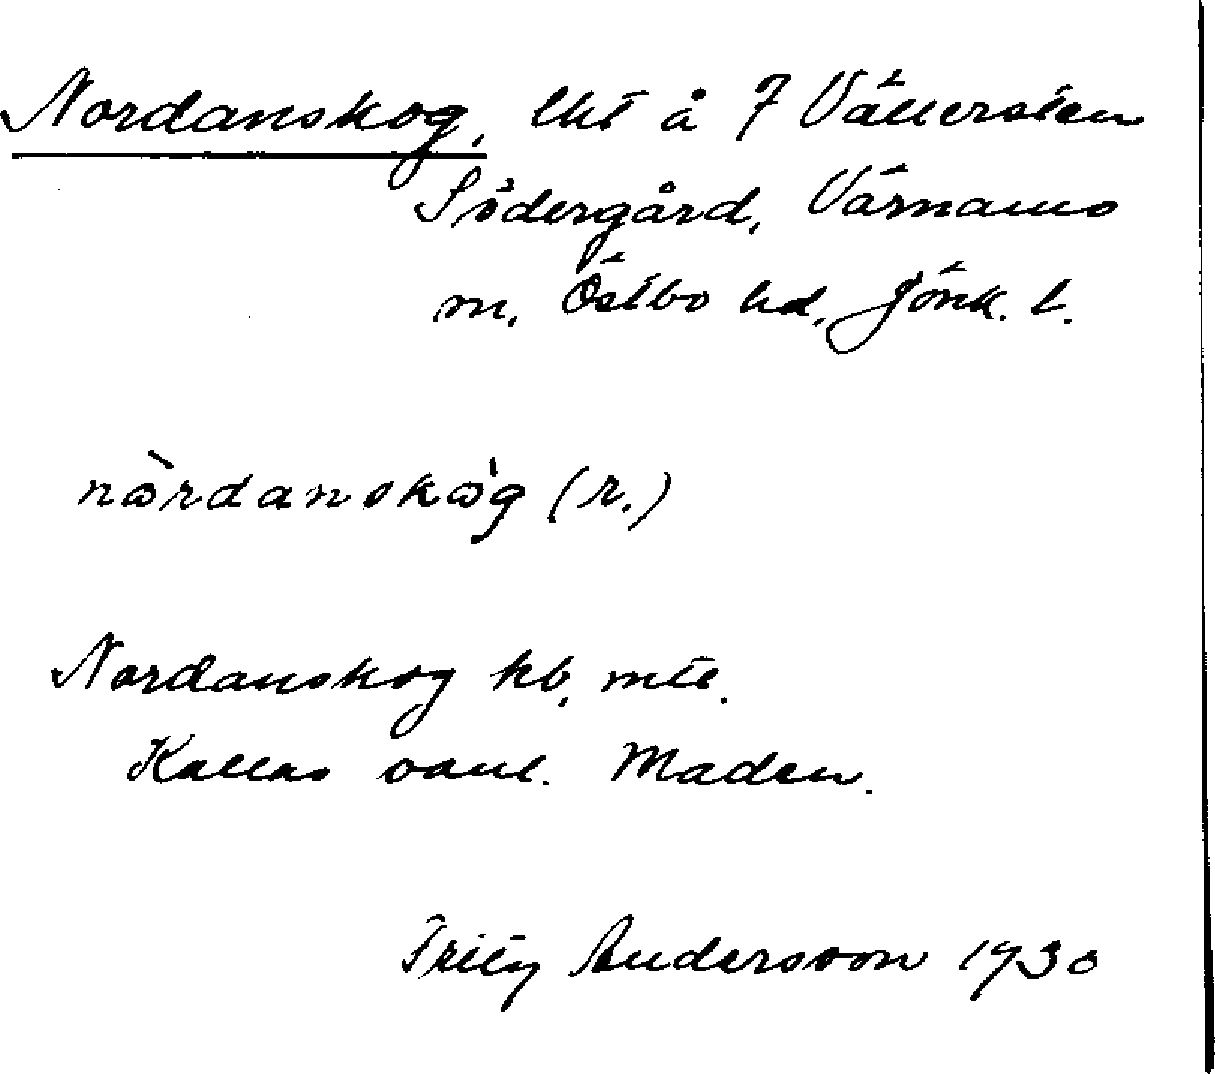 Nordanskog, lht å 7 Vällersten
Södergård, Värnamo
m, Östbo hd, Jönk. l.
nòrdanskò'g (r.)
Nordanskog hb, mte.
Kallas vanl. Maden.
Frity Andersson 1930